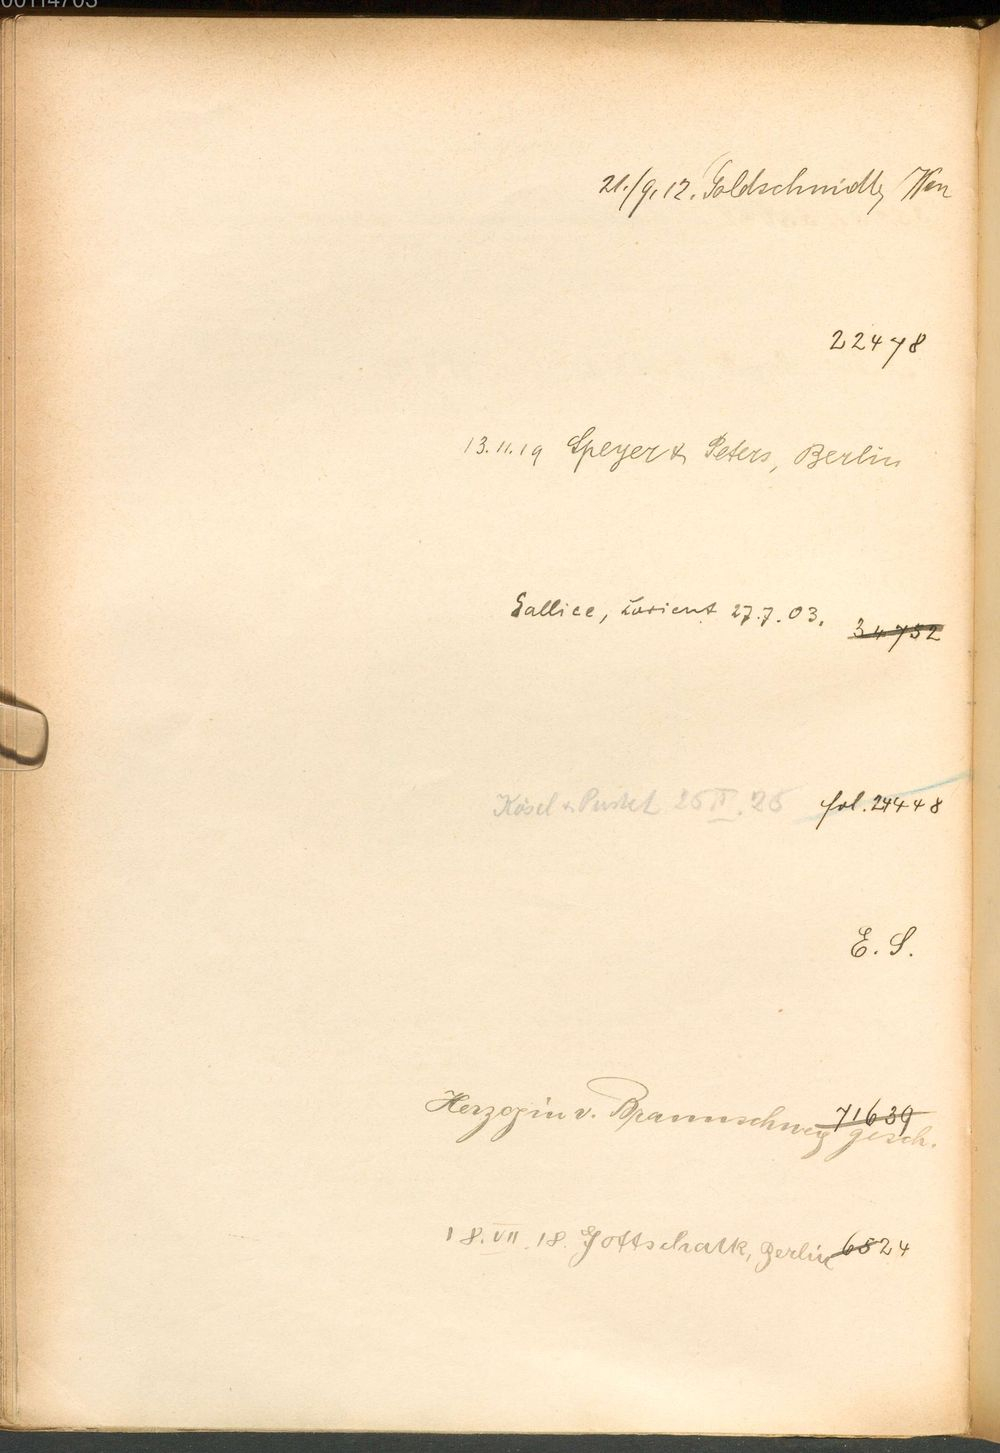 00114703
21./9.12. Goldschmidt, Wien
22478
13.11.19 Speyer & Peters, Berlin
Gallice, Lorient 27.7.03. 34752
Kösel & Pustet 25 II. 26 fol. 24448
E. S.
Herzogin v. Braunschweig 71639
gesch.
18. VII. 18. Gottschalk, Berlin 6824